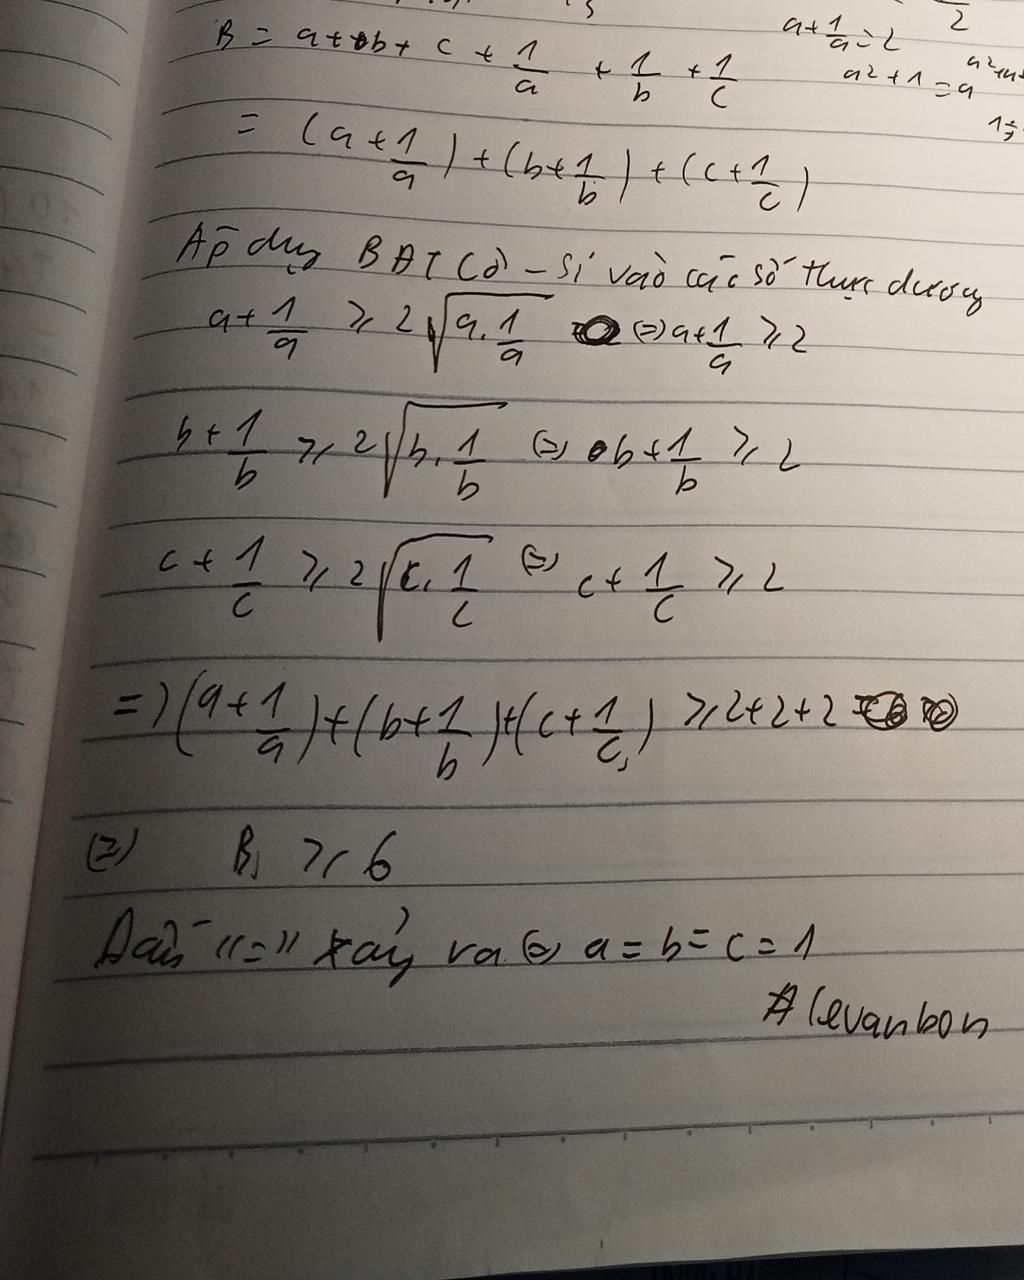 B = a + b + c + 1/a + 1/b + 1/c
a + 1/a = 2
a² + 1 = a
2
= (a + 1/a) + (b + 1/b) + (c + 1/c)
Áp dụng BĐT Cô - Si vào các số thực dương
a + 1/a ≥ 2√(a.1/a) (=) a + 1/a ≥ 2
b + 1/b ≥ 2√(b.1/b) (=) b + 1/b ≥ 2
c + 1/c ≥ 2√(c.1/c) (=) c + 1/c ≥ 2
=) (a + 1/a) + (b + 1/b) + (c + 1/c) ≥ 2 + 2 + 2
(=) B ≥ 6
Dấu "=" xảy ra (=) a = b = c = 1
Alevanbon